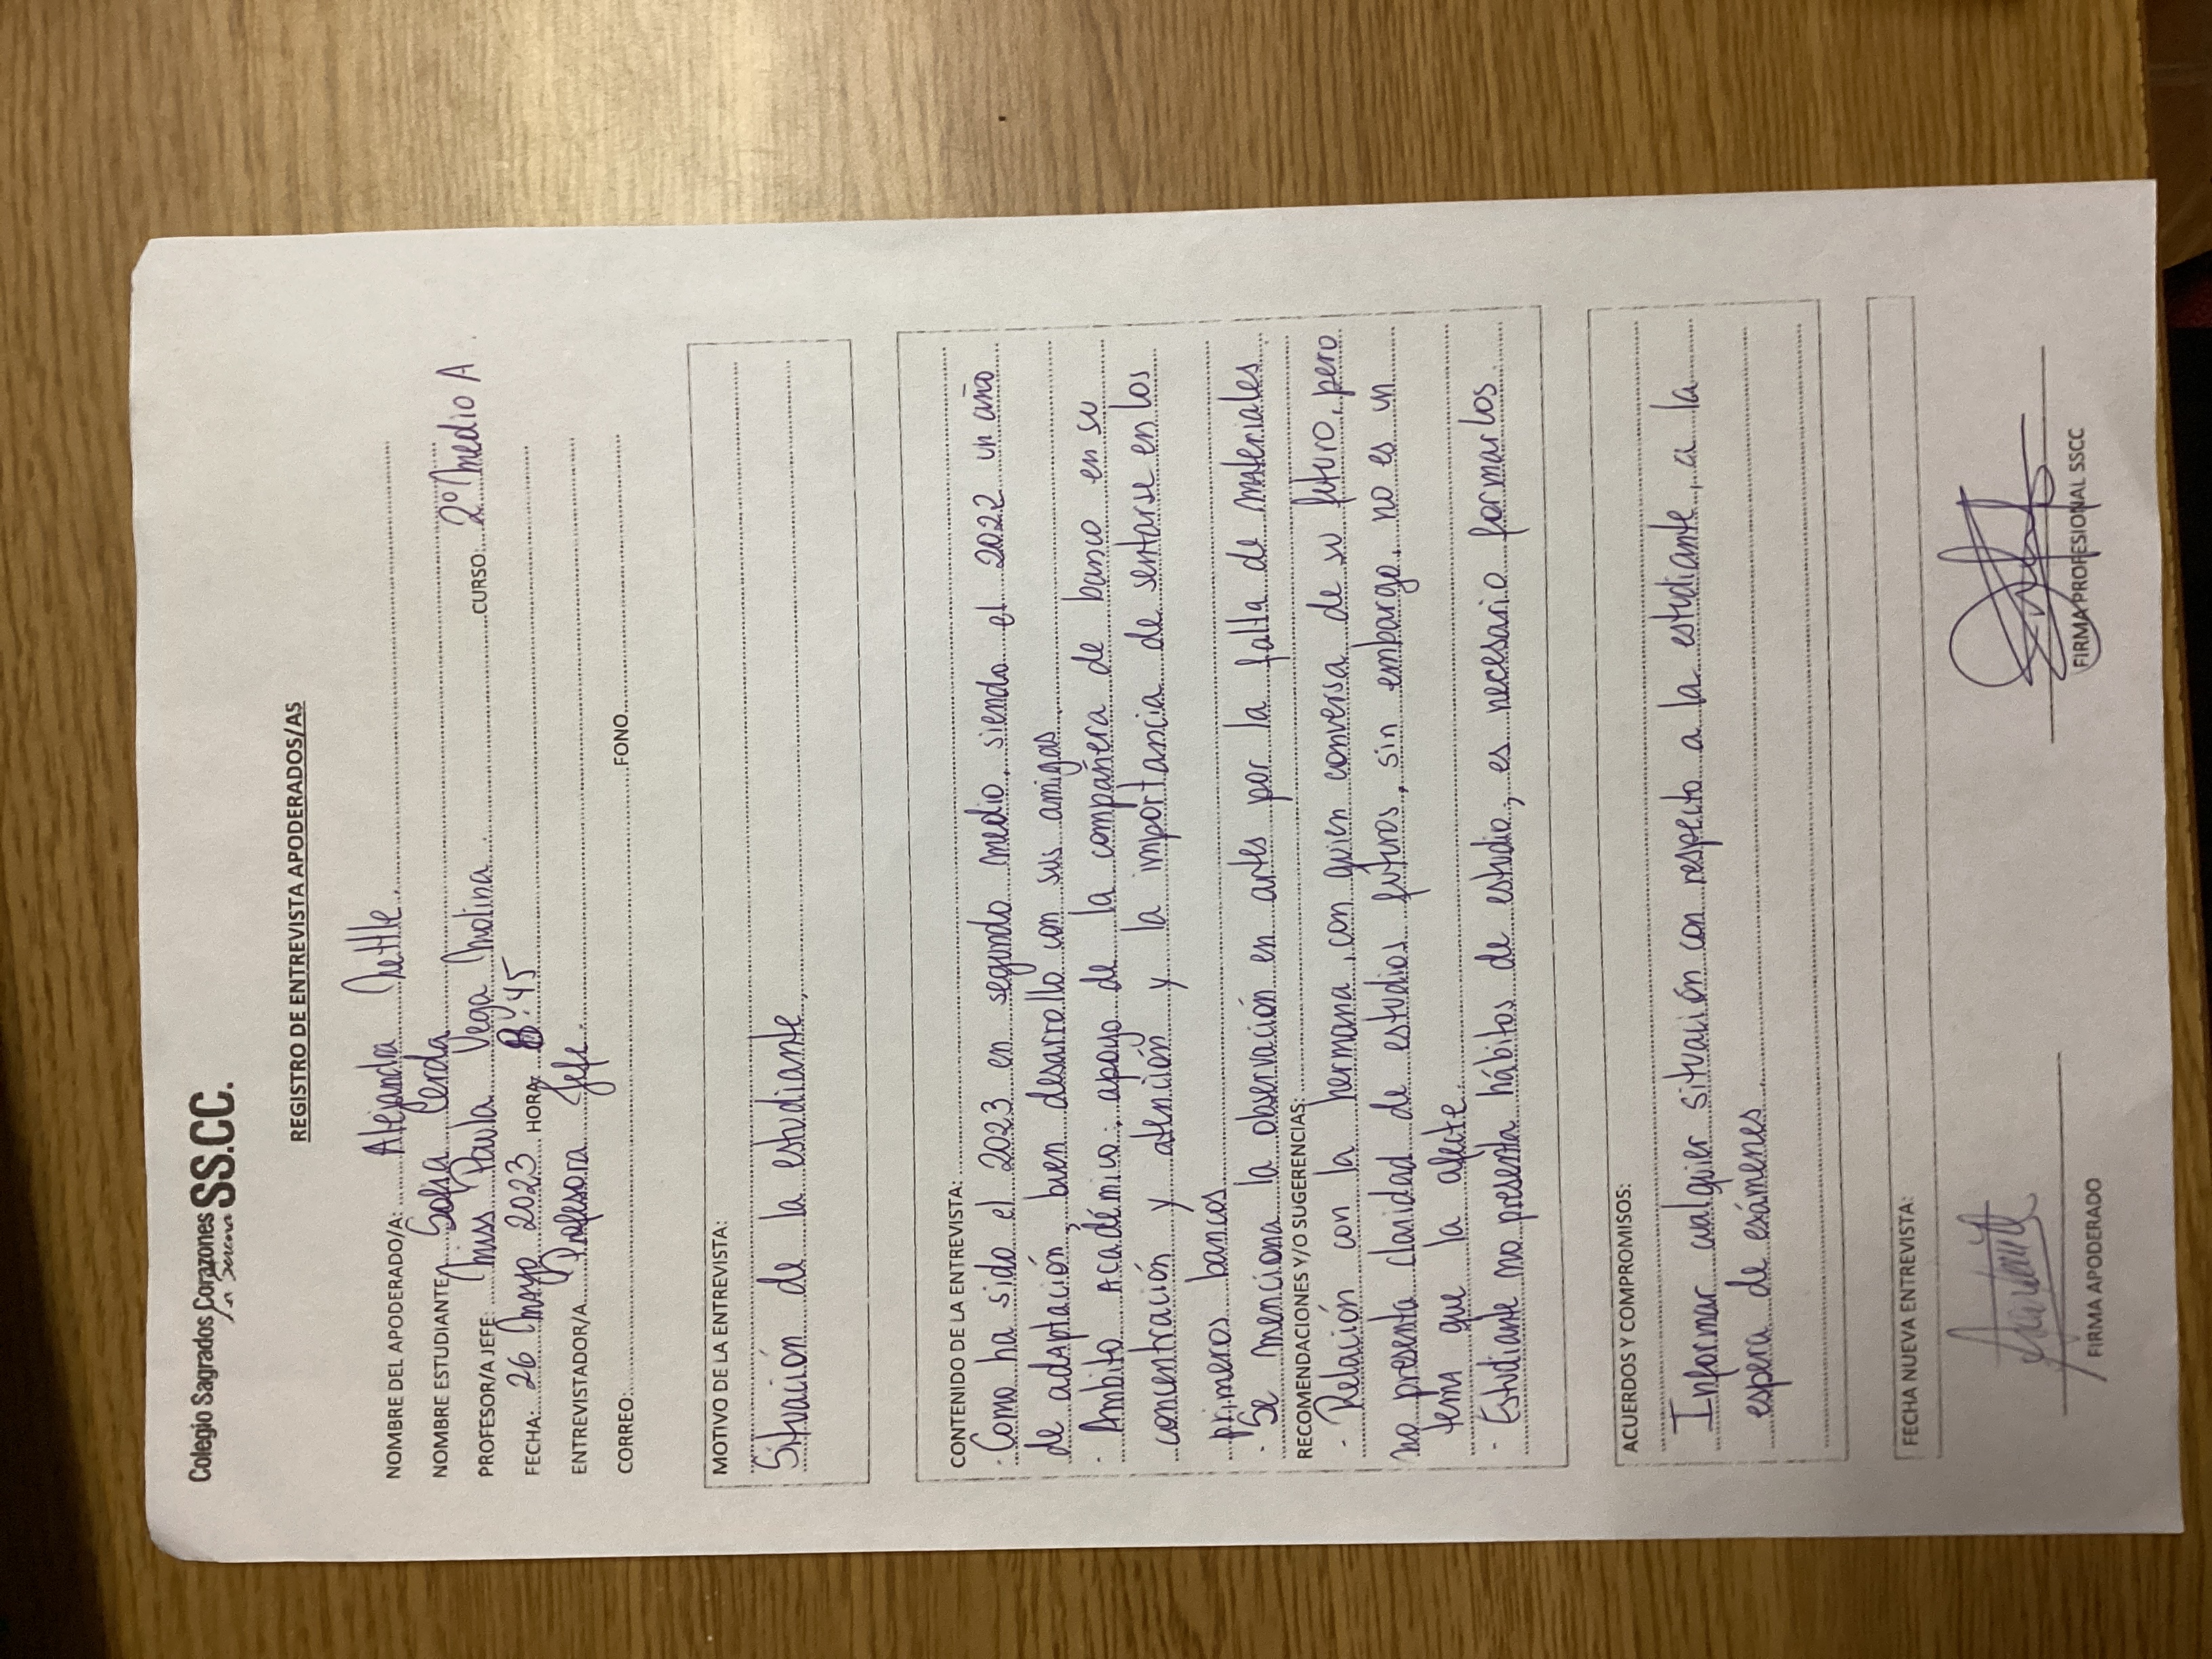 Colegio Sagrados Corazones SS.CC.
La Serena
REGISTRO DE ENTREVISTA APODERADOS/AS
NOMBRE DEL APODERADO/A: Alejandra Nettle
NOMBRE ESTUDIANTE: Sofia Cerda CURSO: 2º Medio A
PROFESOR/A JEFE: Miss Paula Vega Molina
FECHA: 26 Mayo 2023 HORA: 8:45
ENTREVISTADOR/A Profesora Jefe
CORREO: FONO
MOTIVO DE LA ENTREVISTA:
Situación de la estudiante
CONTENIDO DE LA ENTREVISTA:
· Como ha sido el 2023 en segundo medio, siendo el 2022 un año
de adaptación, buen desarrollo con sus amigas
· Ámbito Académico: apoyo de la compañera de banco en su
concentración y atención y la importancia de sentarse en los
primeros bancos
· Se menciona la observación en artes por la falta de materiales
RECOMENDACIONES Y/O SUGERENCIAS:
- Relación con la hermana, con quien conversa de su futuro, pero
no presenta claridad de estudios futuros, sin embargo, no es un
tema que la afecte.
- Estudiante no presenta hábitos de estudio, es necesario formarlos.
ACUERDOS Y COMPROMISOS:
Informar cualquier situación con respecto a la estudiante, a la
espera de exámenes
FECHA NUEVA ENTREVISTA:
FIRMA APODERADO FIRMA PROFESIONAL SSCC